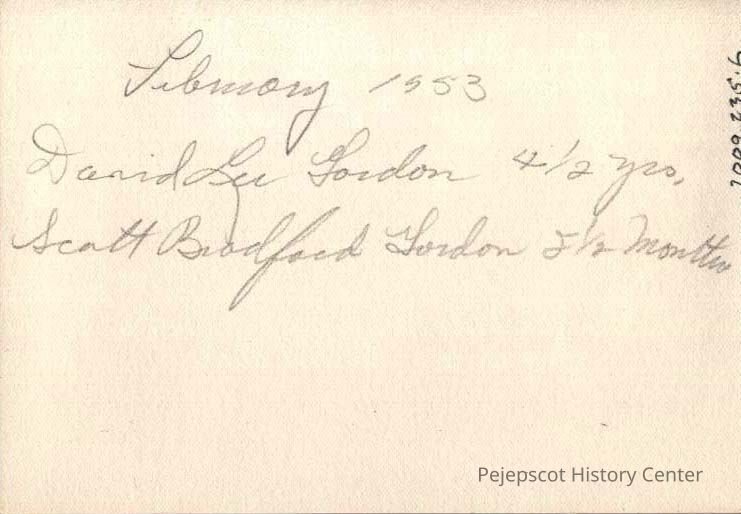 February 1953
David Lee Gordon 4 1/2 yrs,
Scott Bradford Gordon 5 1/2 Months
2009.235.6
Pejepscot History Center